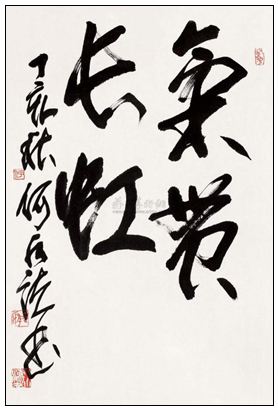 氣贯
长虹
丁亥秋何应辉书